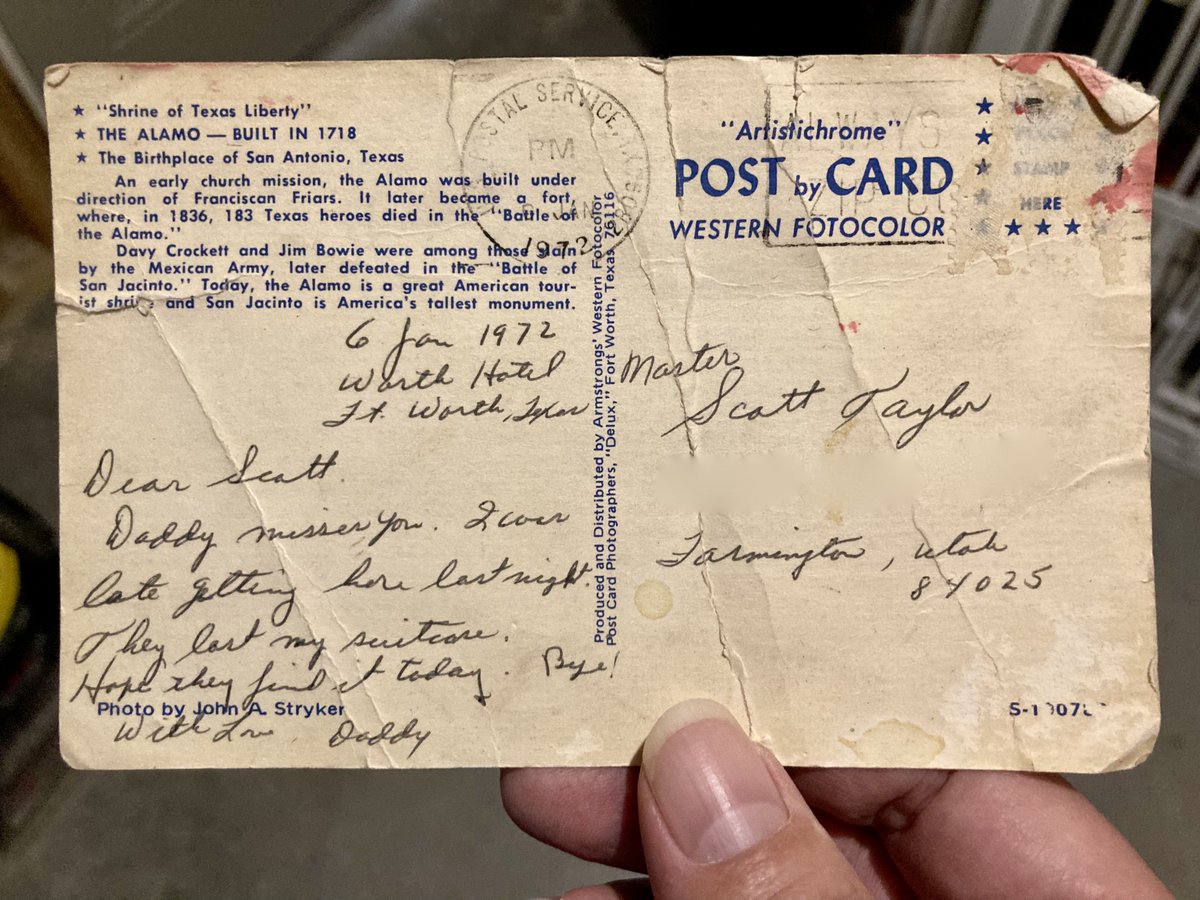 ★ "Shrine of Texas Liberty"
★ THE ALAMO — BUILT IN 1718
★ The Birthplace of San Antonio, Texas
An early church mission, the Alamo was built under
direction of Franciscan Friars. It later became a fort,
where, in 1836, 183 Texas heroes died in the "Battle of
the Alamo."
Davy Crockett and Jim Bowie were among those slain
by the Mexican Army, later defeated in the "Battle of
San Jacinto." Today, the Alamo is a great American tour-
ist shrine and San Jacinto is America's tallest monument.
POSTAL SERVICE,
PM
JAN
1972
6 Jan 1972
Worth Hotel
Ft. Worth, Texas
Dear Scott.
Daddy misses you. I was
late getting here last night.
They lost my suitcase.
Hope they find it today. Bye!
Photo by John A. Stryker
With Love Daddy
Produced and Distributed by Armstrongs' Western Fotocolor
Post Card Photographers, "Delux," Fort Worth, Texas 76116
"Artistichrome"
POST by CARD
WESTERN FOTOCOLOR
ALWAYS
ZIP
PLACE
STAMP
HERE
Master
Scott Taylor
Farmington, Utah
84025